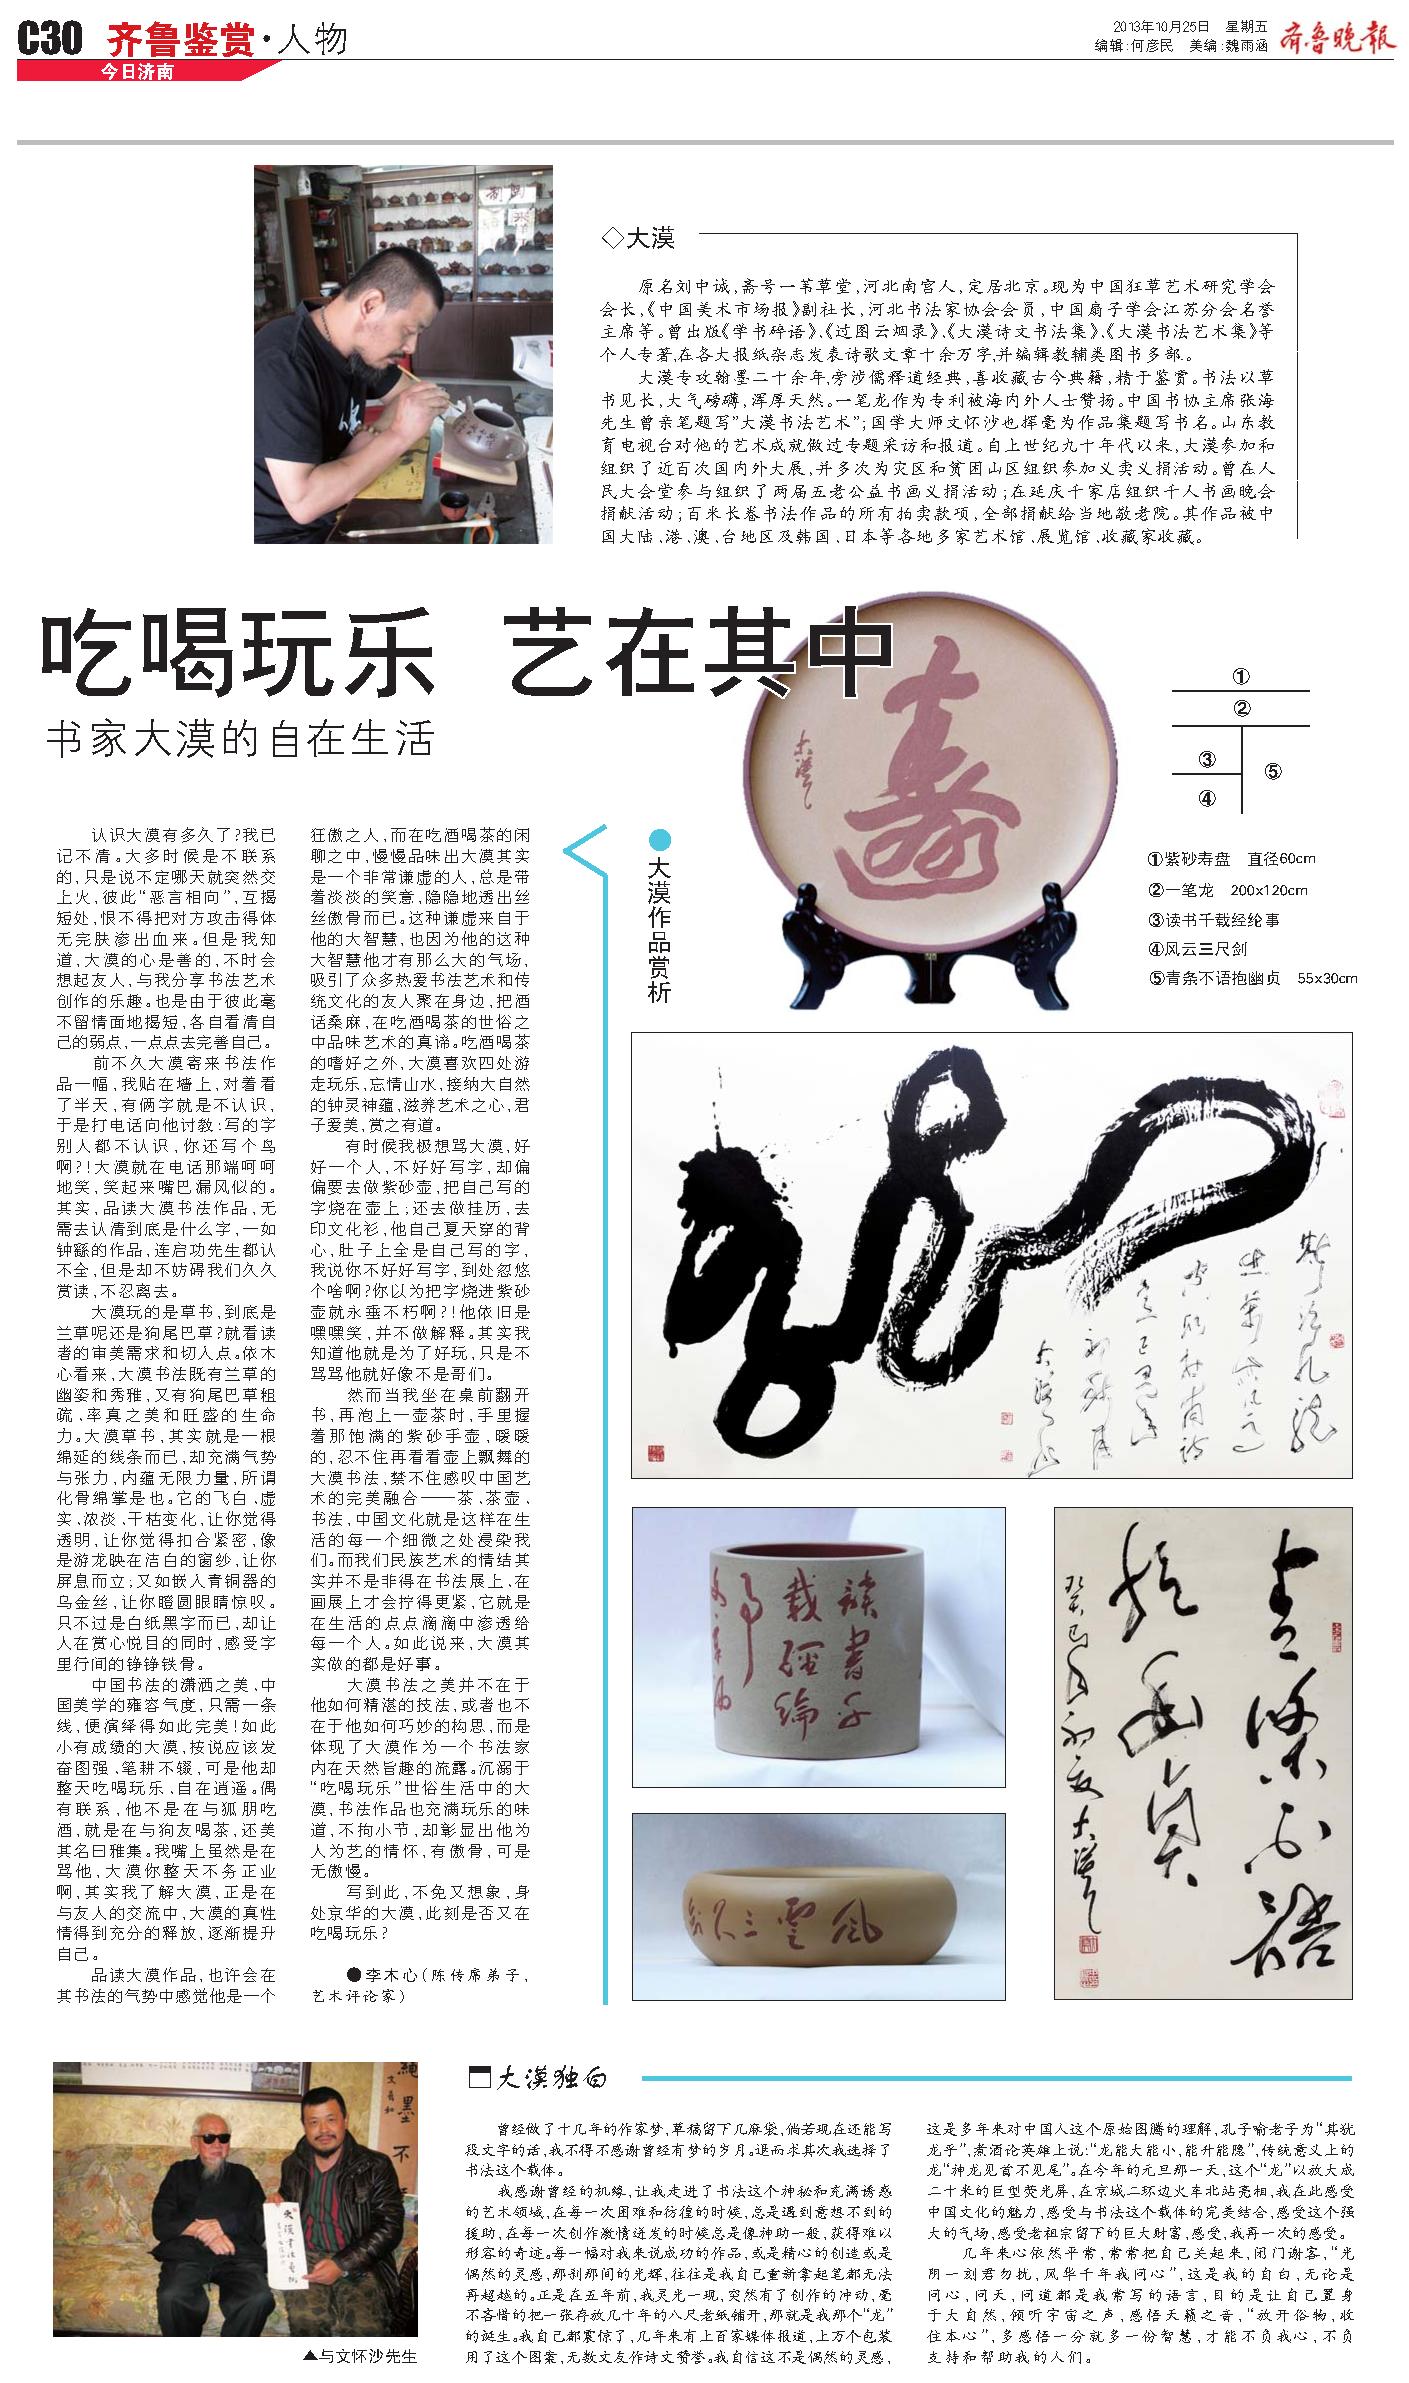 C30 齐鲁鉴赏·人物
今日济南
2013年10月25日 星期五
编辑:何彦民 美编:魏雨涵
齐鲁晚报
◇大漠
原名刘中诚,斋号一苇草堂,河北南宫人,定居北京。现为中国狂草艺术研究学会
会长,《中国美术市场报》副社长,河北书法家协会会员,中国扇子学会江苏分会名誉
主席等。曾出版《学书碎语》、《过图云烟录》、《大漠诗文书法集》、《大漠书法艺术集》等
个人专著,在各大报纸杂志发表诗歌文章十余万字,并编辑教辅类图书多部。
大漠专攻翰墨二十余年,旁涉儒释道经典,喜收藏古今典籍,精于鉴赏。书法以草
书见长,大气磅礴,浑厚天然。一笔龙作为专利被海内外人士赞扬。中国书协主席张海
先生曾亲笔题写"大漠书法艺术";国学大师文怀沙也挥毫为作品集题写书名。山东教
育电视台对他的艺术成就做过专题采访和报道。自上世纪九十年代以来,大漠参加和
组织了近百次国内外大展,并多次为灾区和贫困山区组织参加义卖义捐活动。曾在人
民大会堂参与组织了两届五老公益书画义捐活动;在延庆千家店组织千人书画晚会
捐献活动;百米长卷书法作品的所有拍卖款项,全部捐献给当地敬老院。其作品被中
国大陆、港、澳、台地区及韩国、日本等各地多家艺术馆、展览馆、收藏家收藏。
吃喝玩乐 艺在其中
书家大漠的自在生活
认识大漠有多久了?我已
记不清。大多时候是不联系
的,只是说不定哪天就突然交
上火,彼此“恶言相向”,互揭
短处,恨不得把对方攻击得体
无完肤渗出血来。但是我知
道,大漠的心是善的,不时会
想起友人,与我分享书法艺术
创作的乐趣。也是由于彼此毫
不留情面地揭短,各自看清自
己的弱点,一点点去完善自己。
前不久大漠寄来书法作
品一幅,我贴在墙上,对着看
了半天,有俩字就是不认识,
于是打电话向他讨教:写的字
别人都不认识,你还写个鸟
啊?!大漠就在电话那端呵呵
地笑,笑起来嘴巴漏风似的。
其实,品读大漠书法作品,无
需去认清到底是什么字,一如
钟繇的作品,连启功先生都认
不全,但是却不妨碍我们久久
赏读,不忍离去。
大漠玩的是草书,到底是
兰草呢还是狗尾巴草?就看读
者的审美需求和切入点。依木
心看来,大漠书法既有兰草的
幽姿和秀雅,又有狗尾巴草粗
疏、率真之美和旺盛的生命
力。大漠草书,其实就是一根
绵延的线条而已,却充满气势
与张力,内蕴无限力量,所谓
化骨绵掌是也。它的飞白、虚
实、浓淡、干枯变化,让你觉得
透明,让你觉得扣合紧密,像
是游龙映在洁白的窗纱,让你
屏息而立;又如嵌入青铜器的
乌金丝,让你瞪圆眼睛惊叹。
只不过是白纸黑字而已,却让
人在赏心悦目的同时,感受字
里行间的铮铮铁骨。
中国书法的潇洒之美、中
国美学的雍容气度,只需一条
线,便演绎得如此完美!如此
小有成绩的大漠,按说应该发
奋图强、笔耕不辍,可是他却
整天吃喝玩乐、自在逍遥。偶
有联系,他不是在与狐朋吃
酒,就是在与狗友喝茶,还美
其名曰雅集。我嘴上虽然是在
骂他,大漠你整天不务正业
啊,其实我了解大漠,正是在
与友人的交流中,大漠的真性
情得到充分的释放,逐渐提升
自己。
品读大漠作品,也许会在
其书法的气势中感觉他是一个
狂傲之人,而在吃酒喝茶的闲
聊之中,慢慢品味出大漠其实
是一个非常谦虚的人,总是带
着淡淡的笑意,隐隐地透出丝
丝傲骨而已。这种谦虚来自于
他的大智慧,也因为他的这种
大智慧他才有那么大的气场,
吸引了众多热爱书法艺术和传
统文化的友人聚在身边,把酒
话桑麻,在吃酒喝茶的世俗之
中品味艺术的真谛。吃酒喝茶
的嗜好之外,大漠喜欢四处游
走玩乐,忘情山水,接纳大自然
的钟灵神蕴,滋养艺术之心,君
子爱美,赏之有道。
有时候我极想骂大漠,好
好一个人,不好好写字,却偏
偏要去做紫砂壶,把自己写的
字烧在壶上;还去做挂历,去
印文化衫,他自己夏天穿的背
心,肚子上全是自己写的字,
我说你不好好写字,到处忽悠
个啥啊?你以为把字烧进紫砂
壶就永垂不朽啊?!他依旧是
嘿嘿笑,并不做解释。其实我
知道他就是为了好玩,只是不
骂骂他就好像不是哥们。
然而当我坐在桌前翻开
书,再泡上一壶茶时,手里握
着那饱满的紫砂手壶,暖暖
的,忍不住再看看壶上飘舞的
大漠书法,禁不住感叹中国艺
术的完美融合——茶、茶壶、
书法,中国文化就是这样在生
活的每一个细微之处浸染我
们。而我们民族艺术的情结其
实并不是非得在书法展上、在
画展上才会拧得更紧,它就是
在生活的点点滴滴中渗透给
每一个人。如此说来,大漠其
实做的都是好事。
大漠书法之美并不在于
他如何精湛的技法,或者也不
在于他如何巧妙的构思,而是
体现了大漠作为一个书法家
内在天然旨趣的流露。沉溺于
“吃喝玩乐”世俗生活中的大
漠,书法作品也充满玩乐的味
道,不拘小节,却彰显出他为
人为艺的情怀,有傲骨,可是
无傲慢。
写到此,不免又想象,身
处京华的大漠,此刻是否又在
吃喝玩乐?
●李木心(陈传席弟子,
艺术评论家)
●大漠作品赏析
寿
大漠
①
②
③
④
⑤
①紫砂寿盘 直径60cm
②一笔龙 200x120cm
③读书千载经纶事
④风云三尺剑
⑤青条不语抱幽贞 55x30cm
读书千
载經綸
事
風雲三尺剑
青條不語
抱幽貞
▲与文怀沙先生
大漠独白
曾经做了十几年的作家梦,草稿留下几麻袋,倘若现在还能写
段文字的话,我不得不感谢曾经有梦的岁月。退而求其次我选择了
书法这个载体。
我感谢曾经的机缘,让我走进了书法这个神秘和充满诱惑
的艺术领域,在每一次困难和彷徨的时候,总是遇到意想不到的
援助,在每一次创作激情迸发的时候总是像神助一般,获得难以
形容的奇迹。每一幅对我来说成功的作品,或是精心的创造或是
偶然的灵感,那刹那间的光辉,往往是我自己重新拿起笔都无法
再超越的。正是在五年前,我灵光一现,突然有了创作的冲动,毫
不吝惜的把一张存放几十年的八尺老纸铺开,那就是我那个“龙”
的诞生。我自己都震惊了,几年来有上百家媒体报道,上万个包装
用了这个图案,无数文友作诗文赞誉。我自信这不是偶然的灵感,
这是多年来对中国人这个原始图腾的理解,孔子喻老子为“其犹
龙乎”,煮酒论英雄上说:“龙能大能小,能升能隐”,传统意义上的
龙“神龙见首不见尾”。在今年的元旦那一天,这个“龙”以放大成
二十米的巨型荧光屏,在京城二环边火车北站亮相,我在此感受
中国文化的魅力,感受与书法这个载体的完美结合,感受这个强
大的气场,感受老祖宗留下的巨大财富,感受,我再一次的感受。
几年来心依然平常,常常把自己关起来,闭门谢客,“光
阴一刻君勿扰,风华千年我问心”,这是我的自白,无论是
问心,问天,问道都是我常写的语言,目的是让自己置身
于大自然,倾听宇宙之声,感悟天籁之音,“放开俗物,收
住本心”,多感悟一分就多一份智慧,才能不负我心,不负
支持和帮助我的人们。